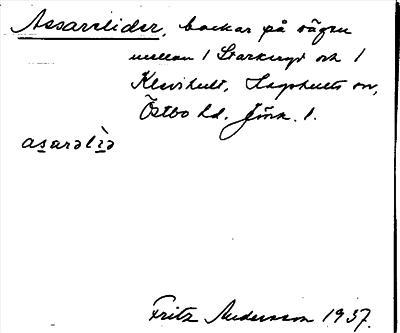 Assarelider, backar på vägen
mellan 1 Starkeryd och 1
Klevihult, Hagshults sn,
Östbo hd. Jönk. l.
asarəlìə
Fritz Andersson 1937.